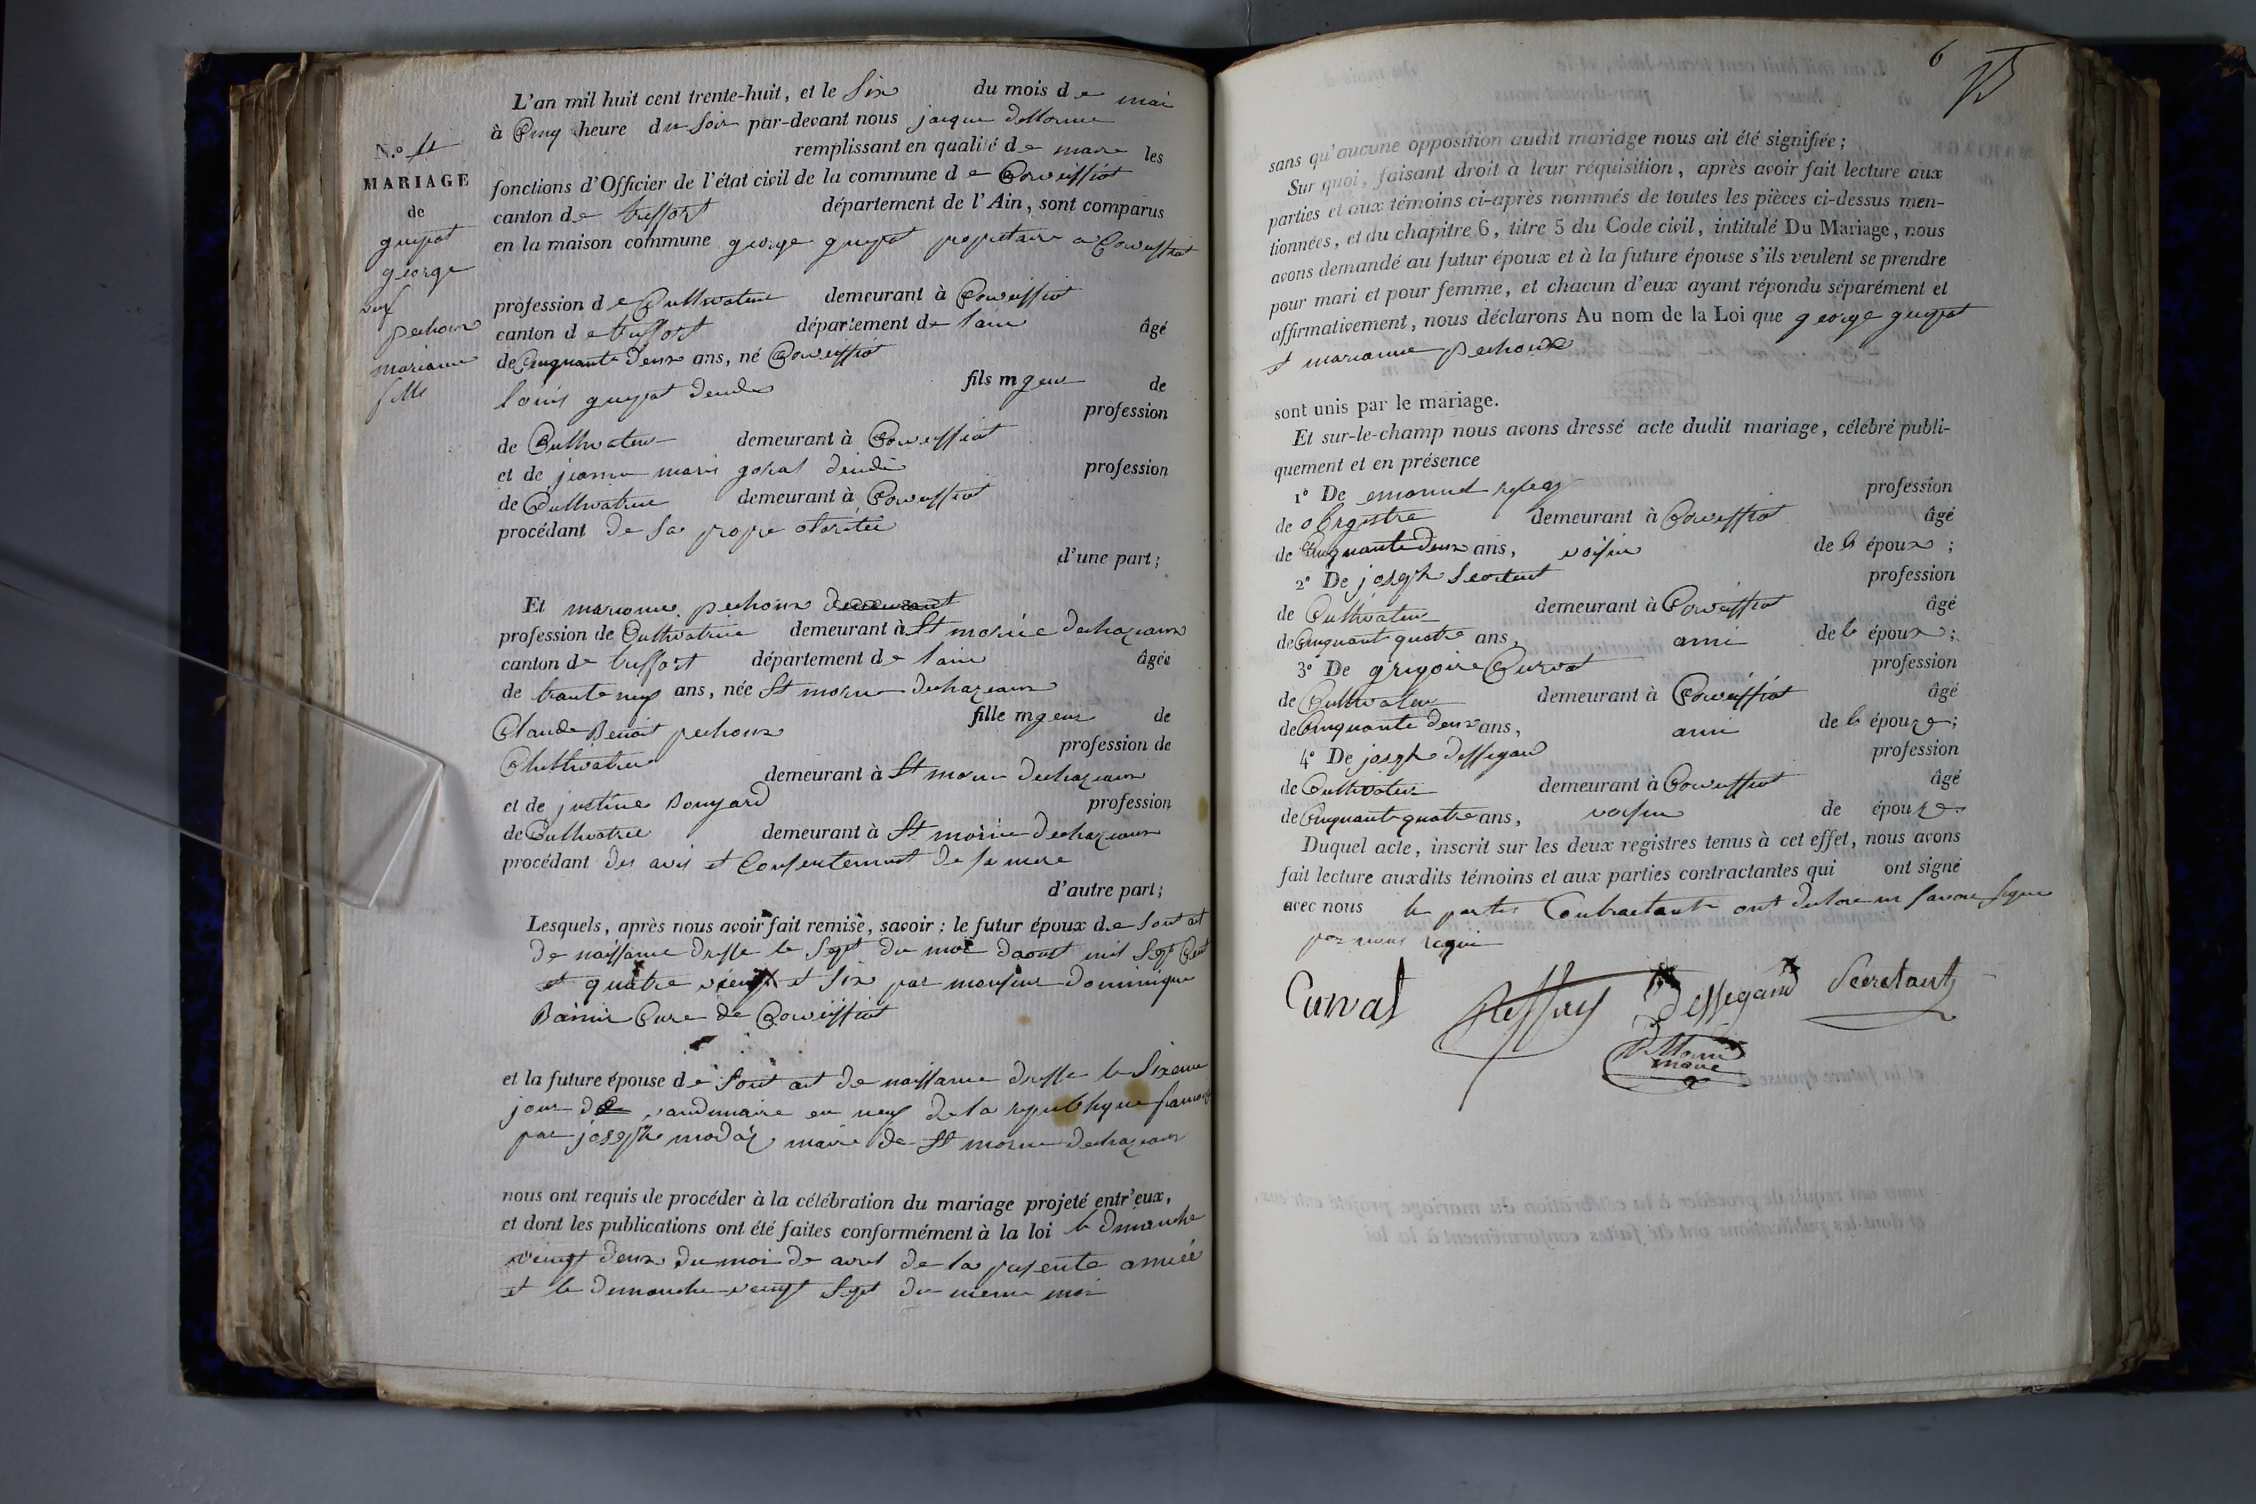 L'an mil huit cent trente-huit, et le Six du mois de mai
à Cinq heure du Soir par-devant nous jacque dellorme
remplissant en qualité de maire les
N.º
MARIAGE
de
guypat
george
veuf
pechoux
marianne
fille
fonctions d'Officier de l'état civil de la commune de Coveissiat
canton de treffort département de l'Ain, sont comparus
en la maison commune george guypat propietaire a Coveissiat
profession de Cultivateur demeurant à Coveissiat
canton de treffort département de lain âgé
de Cinquante deux ans, né Coveissiat
fils mgeur de
louis guypat decede
profession
de Cultivateur demeurant à Coveissiat
et de jeanne marie decedé profession
de Cultivatrice demeurant à Coveissiat
procédant de sa propre otoritéé
d'une part;
Et marianne pechoux demeurant
profession de Cultivatrice demeurant à St morice dechazeaux
canton de treffort département de lain âgée
de trante neuf ans, née St morice dechazeaux
fille mgeur de
Claude Benoit pechoux
profession de
Clultivateur demeurant à St morice dechazeaux
et de justine Bouyard profession
de Cultivatrice demeurant à St morice dechazeaux
procédant des avis et Consentement de sa mere
d'autre part;
Lesquels, après nous avoir fait remise, savoir: le futur époux de Sont act
de naissance dresse le Sept du moi daoust mil Sept Cent
et quatre vingt et Six par monsieur dominique
Cure de Coveissiat
et la future épouse de Sont act de naissance dresse le Sixeme
jour de vandemaire en neuf de la republique francaise
par joseph maire de St morice dechazeaux
nous ont requis de procéder à la célébration du mariage projeté entr'eux,
et dont les publications ont été faites conformément à la loi le dimanche
vingt deux du moi de avril de la presente année
et le dimanche vingt Sept du meme moi
6
sans qu'aucune opposition audit mariage nous ait été signifiée;
Sur quoi, faisant droit à leur réquisition, après avoir fait lecture aux
parties et aux témoins ci-après nommés de toutes les pièces ci-dessus men-
tionnées, et du chapitre 6, titre 5 du Code civil, intitulé Du Mariage, nous
avons demandé au futur époux et à la future épouse s'ils veulent se prendre
pour mari et pour femme, et chacun d'eux ayant répondu séparément et
affirmativement, nous déclarons Au nom de la Loi que george guypat
et marianne pechoux
sont unis par le mariage.
Et sur-le-champ nous avons dressé acte dudit mariage, célébré publi-
quement et en présence
1º De emanuel profession
de demeurant à Coveissiat âgé
de Cinquante deux ans, voisin de l époux;
2º De joseph Secretent profession
de Cultivateur demeurant à Coveissiat âgé
de Cinquant quatre ans, ami de l époux;
3º De grigoire Curvat profession
de Cultivateur demeurant à Coveissiat âgé
de Cinquante deux ans, ami de l épouze;
4º De joseph dessigand profession
de Cultivateur demeurant à Coveissiat âgé
de Cinquante quatre ans, voisin de épouze
Duquel acte, inscrit sur les deux registres tenus à cet effet, nous avons
fait lecture auxdits témoins et aux parties contractantes qui ont signé
avec nous le partis Contractante ont declore ne savoir signe
par nous requi
Curvat Dessigand Secretant
Dellorme
maire